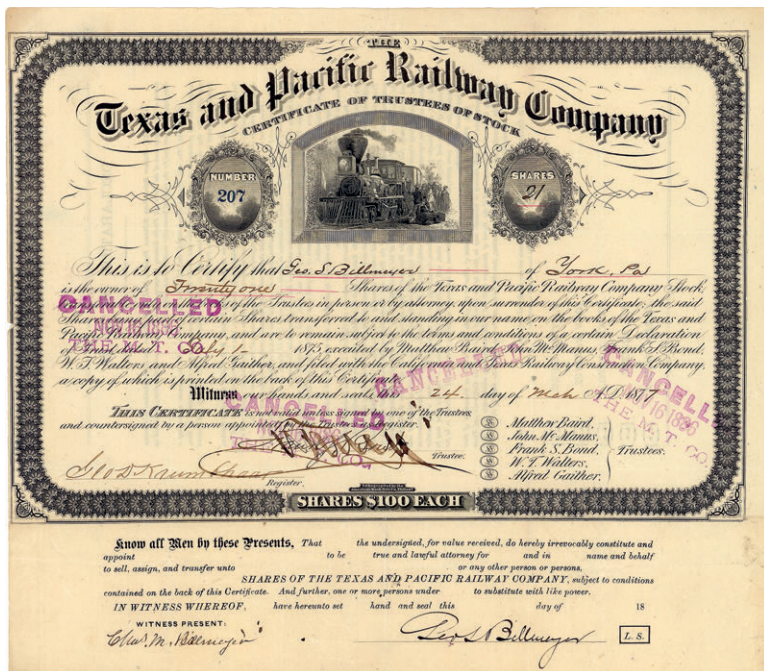 THE
Texas and Pacific Railway Company
CERTIFICATE OF TRUSTEES OF STOCK
NUMBER
207
SHARES
21
This is to Certify that Geo. S Billmeyer of York, Pa
is the owner of Twenty one Shares of the Texas and Pacific Railway Company Stock,
of the Trustees in person or by attorney, upon surrender of this Certificate, the said
Shares certain Shares transferred to and standing in our name, on the books of the Texas and
Pacific Railway Company, and are to remain subject to the terms and conditions of a certain Declaration
of July 1 1875, executed by Matthew Baird, John McManus, Frank S. Bond,
W. T. Walters and Alfred Gaither, and filed with the California and Texas Railway Construction Company,
a copy of which is printed on the back of this Certificate.
Witness our hands and seals this 24 day of Mch A.D. 1877
THIS CERTIFICATE is not valid unless signed by one of the Trustees
and countersigned by a person appointed by the Trustees as register.
Matthew Baird,
John McManus,
Frank S. Bond,
W. T. Walters,
Alfred Gaither.
Trustees.
Trustee.
Register.
CANCELLED
NOV 16 1896
THE M. T. CO.
CANCELLED
CANCELLED
CANCELLED
NOV 16 1896
THE M. T. CO.
SHARES $100 EACH
Know all Men by these Presents, That the undersigned, for value received, do hereby irrevocably constitute and
appoint to be true and lawful attorney for and in name and behalf
to sell, assign, and transfer unto or any other person or persons,
SHARES OF THE TEXAS AND PACIFIC RAILWAY COMPANY, subject to conditions
contained on the back of this Certificate. And further, one or more persons under to substitute with like power.
IN WITNESS WHEREOF, have hereunto set hand and seal this day of 18
WITNESS PRESENT:
Chas. M. Billmeyer
Geo S Billmeyer
L. S.